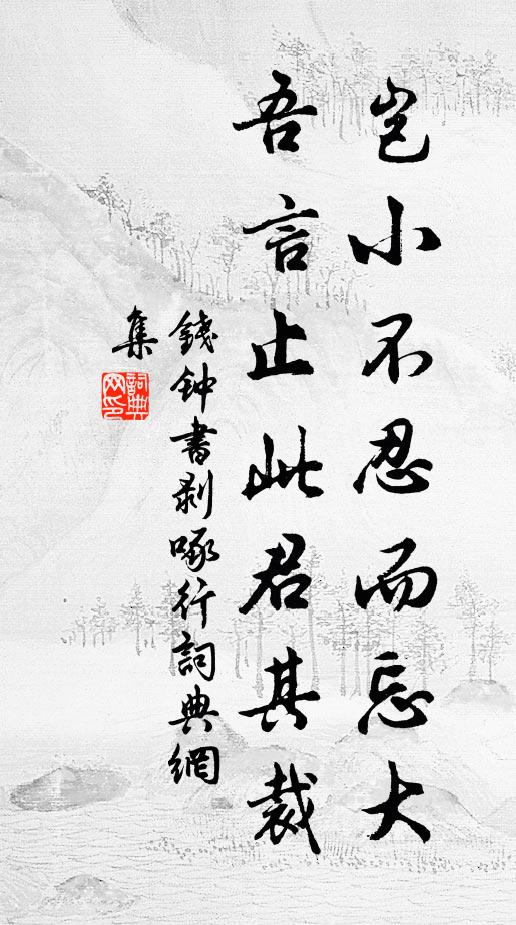 岂小不忍而忘大
吾言止此君其裁
錢钟書剥啄行詞典網
集
詞典
网印